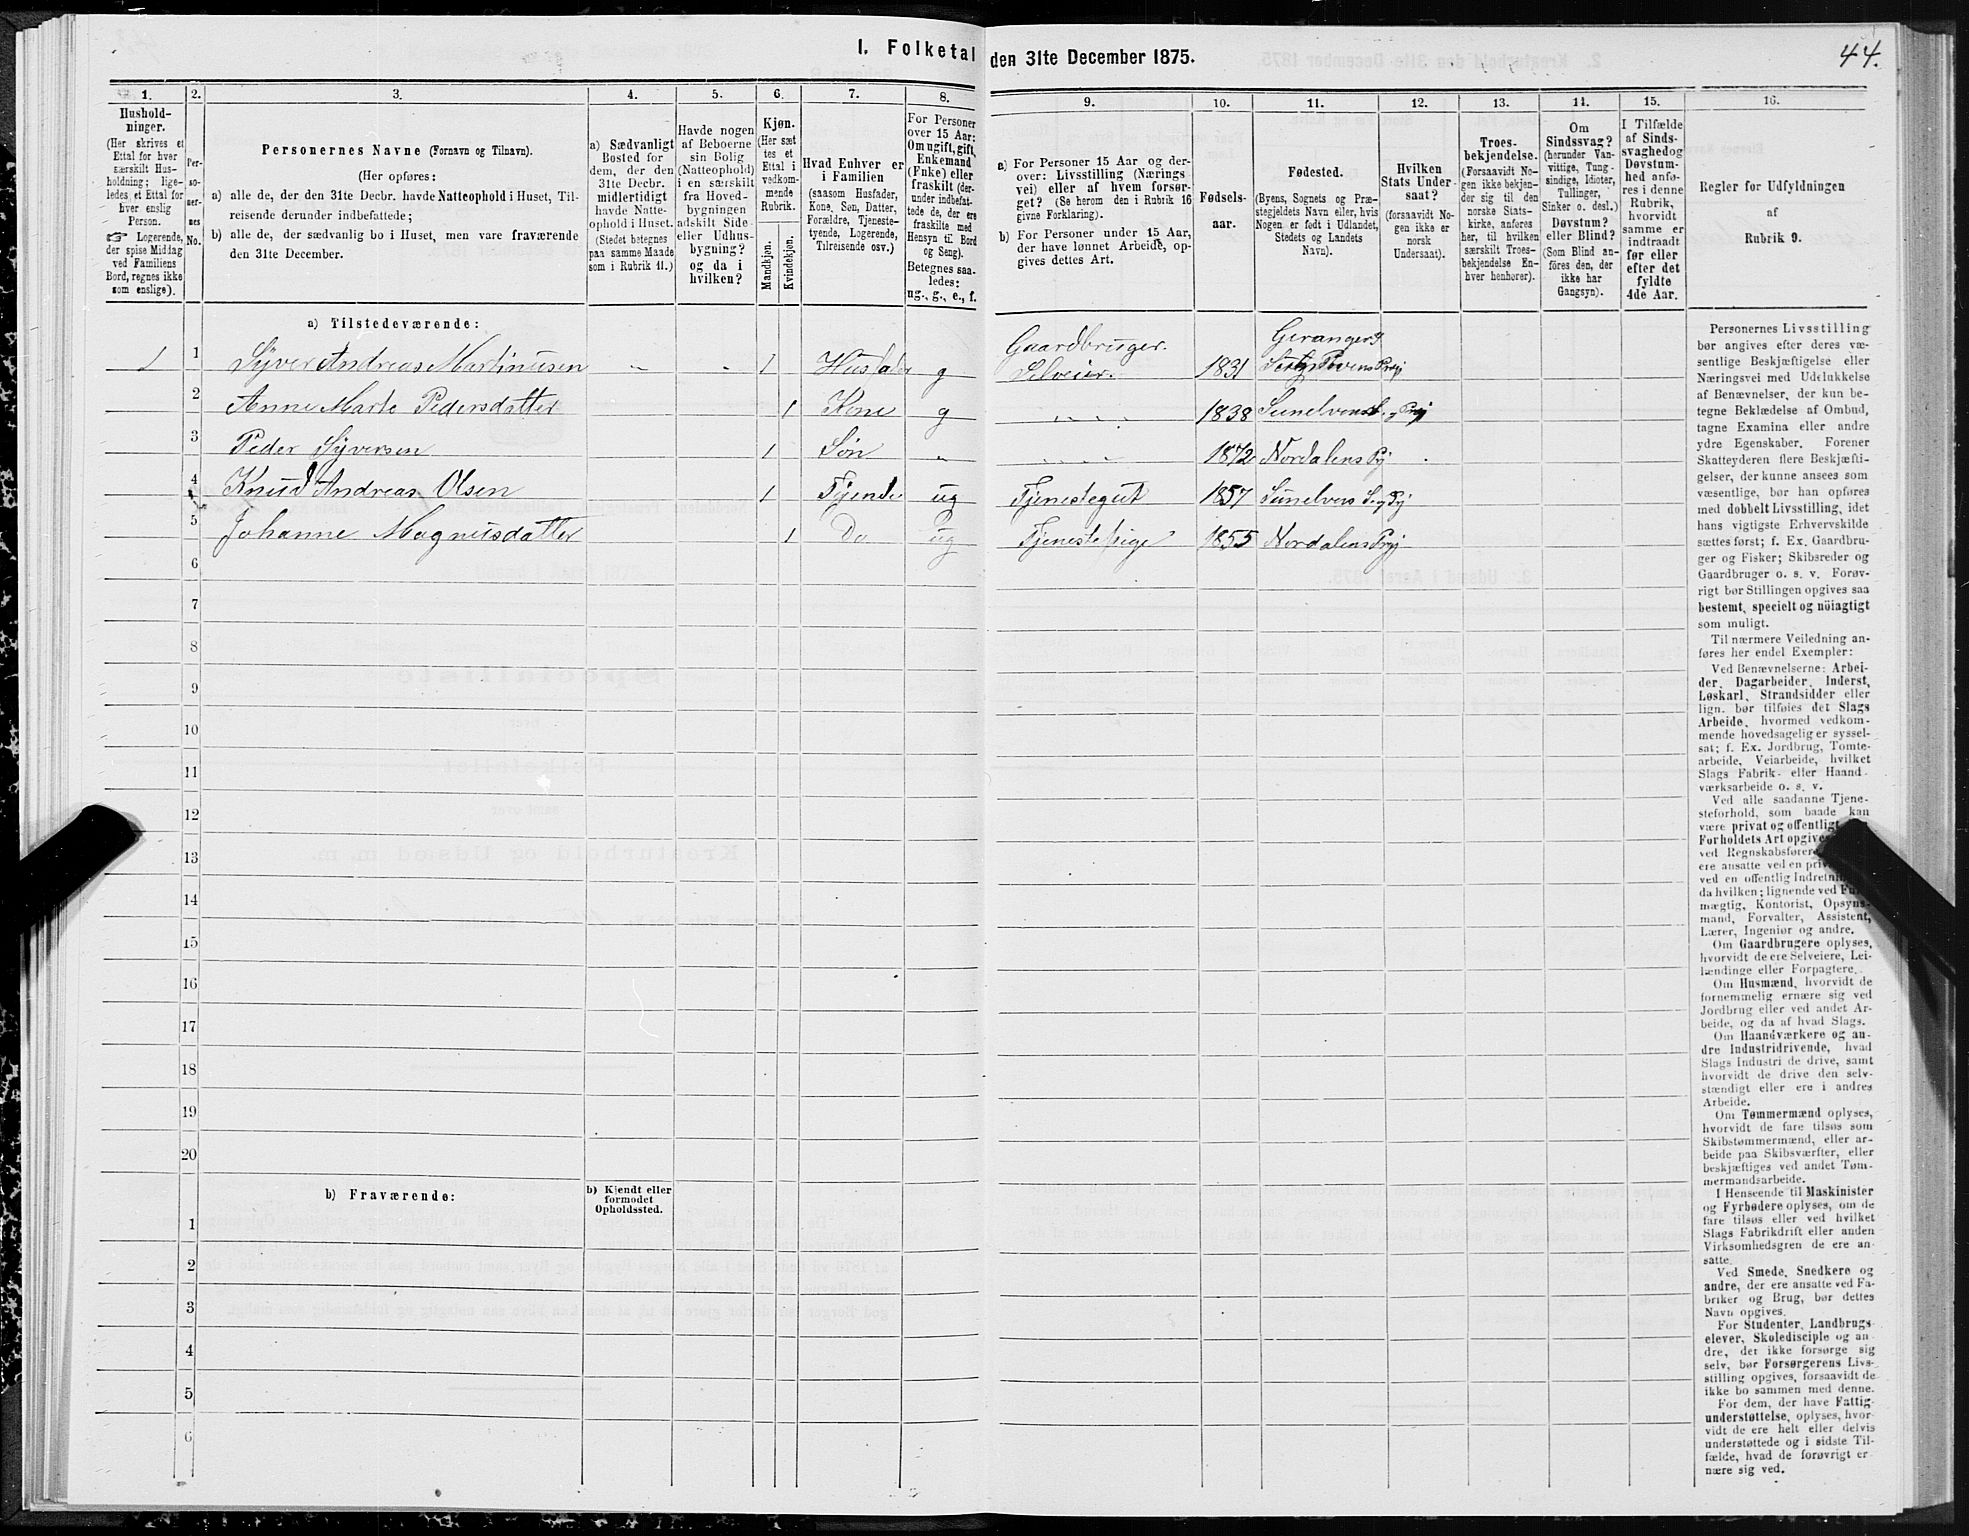 44.
1. Folketal den 31te December 1875.
1. 2. 3. 4. 5. 6. 7. 8. 9. 10. 11. 12. 13. 14. 15. 16.
Hushold-
ninger.
(Her skrives et
Ettal for hver
særskilt Hus-
holdning; lige-
ledes et Ettal for
hver enslig
Person.
☞ Logerende,
der spise Middag
ved Familiens
Bord, regnes ikke
som enslige).
Per-
so-
ner-
nes
No.
Personernes Navne (Fornavn og Tilnavn).
(Her opføres:
a) alle de, der den 31te Decbr. havde Natteophold i Huset, Til-
reisende derunder indbefattede;
b) alle de, der sædvanlig bo i Huset, men vare fraværende
den 31te December.
a) Sædvanligt
Bosted for
dem, der den
31te Decbr.
midlertidigt
havde Natte-
ophold i Huset.
(Stedet betegnes
paa samme Maade
som i Rubrik 11.)
Havde nogen
af Beboerne
sin Bolig
(Natteophold)
i en særskilt
fra Hoved-
bygningen
adskilt Side-
eller Udhus-
bygning?
og da i
hvilken?
Kjøn.
(Her sæt
tes et
Ettal i
vedkom-
mende
Rubrik.
Mandkjøn.
Kvindekjøn.
Hvad Enhver er
i Familien
(saasom Husfader,
Kone, Søn, Datter,
Forældre, Tjeneste-
tyende, Logerende,
Tilreisende osv.)
For Personer
over 15 Aar:
Om ugift, gift,
Enkemand
(Enke) eller
fraskilt (der-
under indbefat-
tede de, der ere
fraskilte med
Hensyn til Bord
og Seng).
Betegnes saa-
ledes:
ug., g., e., f.
a) For Personer 15 Aar og der-
over: Livsstilling (Nærings
vei) eller af hvem forsør-
get? (Se herom den i Rubrik 16
givne Forklaring).
b) For Personer under 15 Aar,
der have lønnet Arbeide, op-
gives dettes Art.
Fødsels-
aar.
Fødested.
(Byens, Sognets og Præ-
stegjeldets Navn eller, hvis
Nogen er født i Udlandet,
Stedets og Landets
Navn).
Hvilken
Stats Under-
saat?
(forsaavidt No-
gen ikke er
norsk
Undersaat).
Troes-
bekjendelse.
(Forsaavidt No-
gen ikke bekjen-
der sig til den
norske Stats-
kirke, anføres
her, til hvilken
særskilt Troes-
bekjendelse En-
hver henhører).
Om
Sindssvag?
(herunder Van-
vittige, Tung-
sindige, Idioter,
Tullinger,
Sinker o. desl.)
Døvstum?
eller Blind?
(Som Blind an-
føres den, der
ikke har
Gangsyn).
I Tilfælde
af Sinds-
svaghed og
Døvstum-
hed anfø-
res i denne
Rubrik,
hvorvidt
samme er
indtraadt
før eller
efter det
fyldte
4de Aar.
Regler for Udfyldningen
af
Rubrik 9.
a) Tilstedeværende:
1 1 Syver Andreas Martinusen „ „ 1 Husfader g Gaardbruger. Selveier. 1831 Geranger S.
2 Anne Marte Pedersdatter 1 Kone g „ „ „ 1838 Sunelvens
3 Peder Syversen 1 Søn „ „ „ „ 1872 Nordalens Pgj
4 Knud Andreas Olsen 1 Tjende ug Tjenestegut 1857 Sunelvens
5 Johanne Magnusdatter 1 Do ug Tjenestepige 1855 Nordalens Prgj
6
7
8
9
10
11
12
13
14
15
16
17
18
19
20
b) Fraværende:
b) Kjendt eller
formodet
Opholdssted.
1
2
3
4
5
6
Personernes Livsstilling
bør angives efter deres væ-
sentlige Beskjæftigelse eller
Næringsvei med Udelukkelse
af Benævnelser, der kun be-
tegne Beklædelse af Ombud,
tagne Examina eller andre
ydre Egenskaber. Forener
Skatteyderen flere Beskjæfti-
gelser, der kunne ansees som
væsentlige, bør han opføres
med dobbelt Livsstilling, idet
hans vigtigste Erhvervskilde
sættes først; f. Ex. Gaardbru-
ger og Fisker; Skibsreder og
Gaardbruger o. s. v. Forøv-
rigt bør Stillingen opgives saa
bestemt, specielt og nöiagtigt
som muligt.
Til nærmere Veiledning an-
føres her endel Exempler:
Ved Benævnelserne: Arbei-
der, Dagarbeider, Inderst,
Løskarl, Strandsidder eller
lign. bør tilføies det Slags
Arbeide, hvormed vedkom-
mende hovedsagelig er syssel-
sat; f. Ex. Jordbrug, Tomte-
arbeide, Veiarbeide, hvilket
Slags Fabrik- eller Haand-
værksarbeide o. s. v.
Ved alle saadanne Tjene-
steforhold, som baade kan
være privat og offentligt
Forholdets Art opgive
ved Regnskabsføre
ere ansatte ved en priv
ved en offentlig Indretni
da hvilken; lignende ved
mægtig, Kontorist, Opsyns-
mand, Forvalter, Assistent,
Lærer, Ingeniør og andre.
Om Gaardbrugere oplyses,
hvorvidt de ere Selveiere, Lei-
lændinge eller Forpagtere.
Om Husmænd, hvorvidt de
fornemmelig ernære sig ved
Jordbrug eller ved andet Ar-
beide, og da af hvad Slags.
Om Haandværkere og an-
dre Industridrivende, hvad
Slags Industri de drive, samt
hvorvidt de drive den selv-
stændigt eller ere i andres
Arbeide.
Om Tømmermænd oplyses,
hvorvidt de fare tilsøs som
Skibstømmermænd, eller ar-
beide paa Skibsværfter, eller
beskjæftiges ved andet Tøm-
mermandsarbeide.
I Henseende til Maskinister
og Fyrbødere oplyses, om de
fare tilsøs eller ved hvilket
Slags Fabrikdrift eller anden
Virksomhedsgren de ere an-
satte.
Ved Smede, Snedkere og
andre, der ere ansatte ved Fa-
briker og Brug, bør dettes
Navn opgives.
For Studenter, Landbrugs-
elever, Skoledisciple og an-
dre, der ikke forsørge sig
selv, bør Forsørgerens Livs-
stilling opgives, forsaavidt de
ikke bo sammen med denne.
For dem, der have Fattig-
understøttelse, oplyses, hvor-
vidt de ere helt eller delvis
understøttede og i sidste Til-
fælde, hvad de forøvrigt er-
nære sig ved.